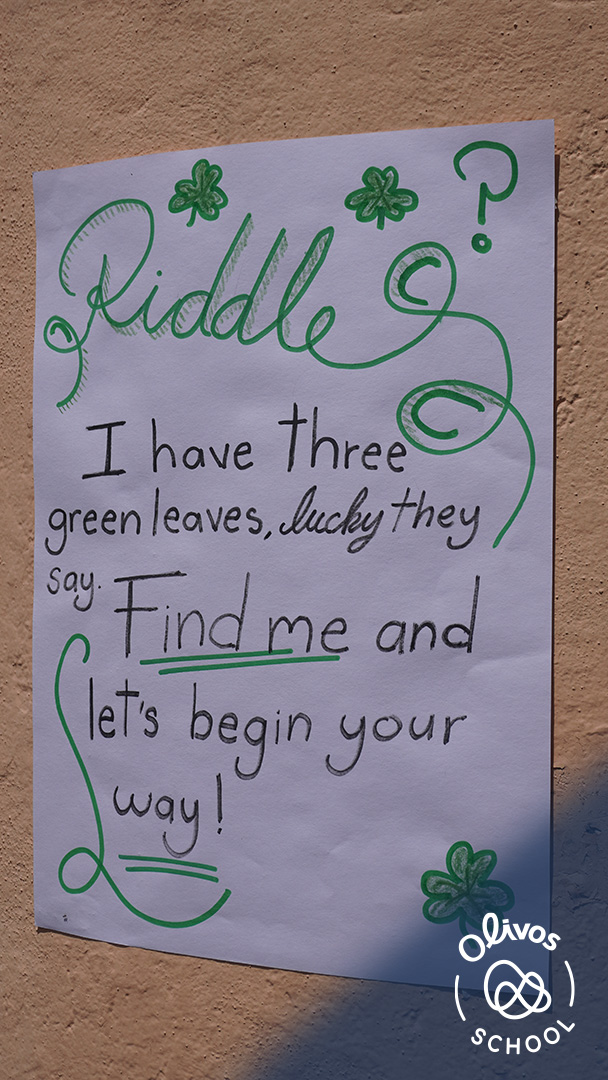 Riddle ?
I have three
green leaves, lucky they
say. Find me and
let's begin your
way!
Olivos
SCHOOL